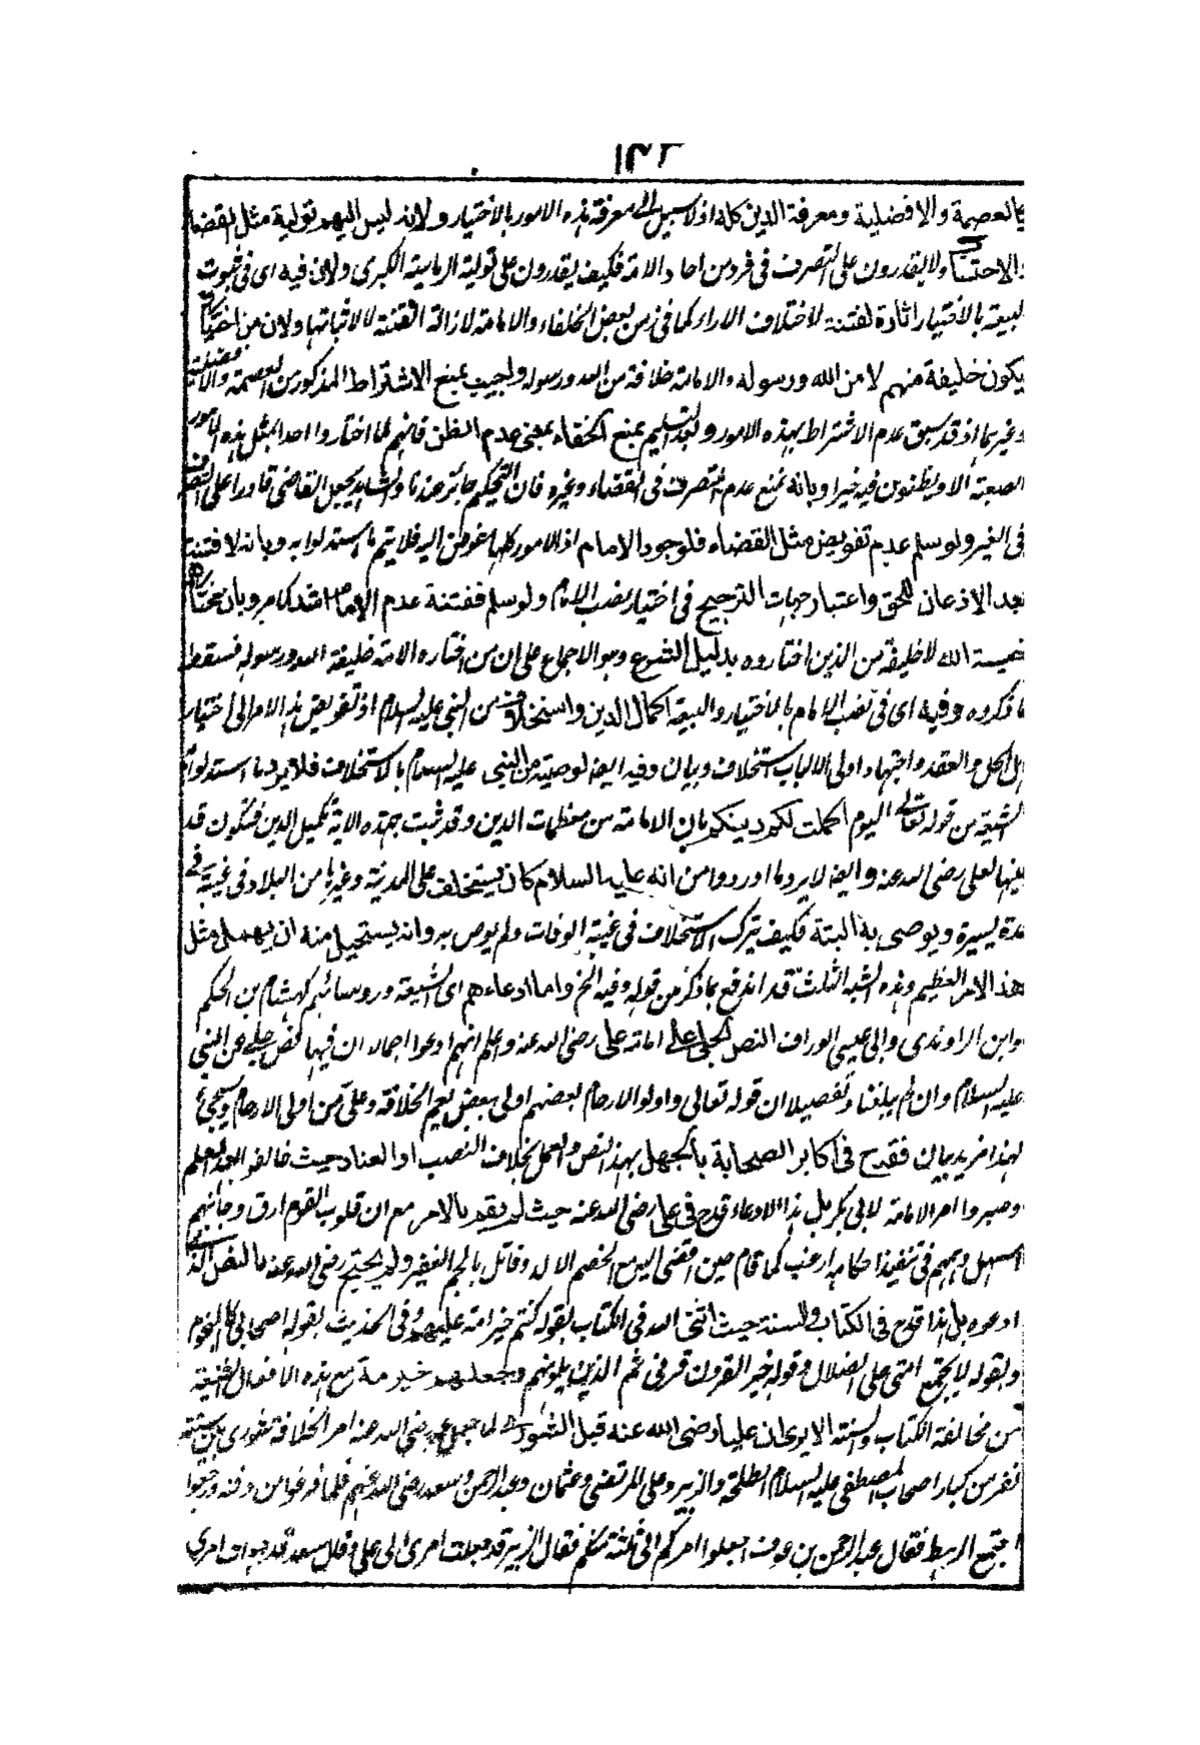 كالعصمة والافضلية ومعرفة الدين كله اذ لا سبيل الى معرفة هذه الامور بالاختيار ولانه ليس اليهم تولية مثل القضا
والاحتساب ولا يقدرون على التصرف فى فرد من احاد الامة فكيف يقدرون على تولية الرياسة الكبرى ولان فيه اى فى ثبوت
البيعة بالاختيار اثارة لفتنة لاختلاف الاراء كما فى زمن بعض الخلفاء والامامة لازالة الفتنة لا لاثباتها ولان من اختاره
يكون خليفة منهم لا من الله ورسوله والامامة خلافة من الله ورسوله واجيب بمنع الاشتراط المذكور من العصمة والافضلية
وغيرهما اذ قد سبق عدم الاشتراط بهذه الامور وبعد التسليم بمنع الخفاء بمعنى عدم الظن فانهم لما اختاروا احدا بمثل هذه الامور
الصعبة الا ويظنون فيه خيرا وبانه بمنع عدم التصرف فى القضاء وغيره فان التحكيم جائز عندنا والشاهد يجعل القاضى قادرا على التصرف
فى الغير ولو سلم عدم تفويض مثل القضاء فلوجود الامام اذ الامور كلها مفوض اليه فلا يتم ما استدلوا به وبانه لا فتنة
بعد الاذعان للحق واعتبار جهات الترجيح فى اختيار نصب الامام ولو سلم ففتنة عدم الامام اشد كما مر وبان مختار
خليفة الله لا خليفة من الذين اختاروه بدليل الشرع وهو الاجماع على ان من اختاره الامة خليفة الله ورسوله فسقط
ما ذكروه وفيه اى فى نصب الامام بالاختيار والبيعة اكمال الدين واستخلاف من النبى عليه السلام اذ تفويض هذا الامر الى اختيار
اهل الحل والعقد واجتهاد اولى الالباب استخلاف وبيان وفيه ايضا لوصية من النبى عليه السلام بالاستخلاف فلا يرد ما استدلوا
الشيعة من قوله تعالى اليوم اكملت لكم دينكم بان الامامة من معظمات الدين وقد ثبت بهذه الاية تكميل الدين فيكون قد
بينها لعلى رضى الله عنه وايضا لا يرد ما اوردوا من انه عليه السلام كان يستخلف على المدينة وغيرها من البلاد فى غيبته فى
مدة يسيرة ويوصى به البتة فكيف يترك الاستخلاف فى غيبة الوفات ولم يوص به وانه يستحيل منه ان يهمل مثل
هذا الامر العظيم وهذه الشبه الثلث قد اندفع بما ذكر من قوله وفيه الخ واما ادعاءهم اى الشيعة وروسائهم كهشام بن الحكم
وابن الراوندى وابى عيسى الوراق النص الجلى على امامة على رضى الله عنه واعلم انهم ادعوا اجمالا ان فيها نص جلى عن النبى
عليه السلام وان لم يبلغنا وتفصيلا ان قوله تعالى واولو الارحام بعضهم اولى ببعض يعم الخلافة وعلى من اولى الارحام وسيجئ
لهذا مزيد بيان فقدح فى اكابر الصحابة بالجهل بهذا النص والعمل بخلافه النصب او العناد حيث خالفوا بعد العلم
وصيروا امر الامامة لابى بكر بل هذا الادعاء قدح فى على رضى الله عنه حيث لم يقم بالامر مع ان قلوب القوم ارق وجانبهم
اسهل وهمهم فى تنفيذ احكامه ارغب كما قام حين افضى اليه مع الخصم الالد وقاتل بالجم الغفير ولم يحتج رضى الله عنه بالنص الذى
ادعوه بل هذا قدح فى الكتاب والسنة حيث اثنى الله فى الكتاب بقوله كنتم خير امة عليهم وفى الحديث بقوله اصحابى كالنجوم
وبقوله لا يجتمع امتى على الضلال وقوله خير القرون قرنى ثم الذين يلونهم وجعلهم خير امة مع هذه الافعال الشنيعة
من مخالفة الكتاب والسنة الا يرى ان عليا رضى الله عنه قبل الشورى لما جعل عمر رضى الله عنه امر الخلافة شورى بين ستة
نفر من كبار اصحاب المصطفى عليه السلام طلحة والزبير وعلى المرتضى وعثمان وعبد الرحمن وسعد رضى الله عنهم فلما فرغوا من دفنه ورجعوا
اجتمع الرهط فقال عبد الرحمن بن عوف اجعلوا امركم الى ثلثة منكم فقال الزبير قد جعلت امرى الى على وقال سعد قد جعلت امرى